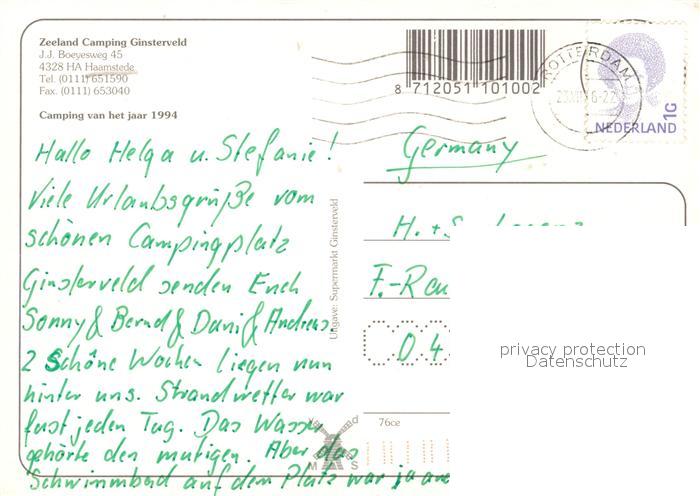 Zeeland Camping Ginsterveld
J.J. Boeyesweg 45
4328 HA Haamstede
Tel. (0111) 651590
Fax. (0111) 653040
Camping van het jaar 1994
8 712051 101002
ROTTERDAM
NEDERLAND 1G
Hallo Helga u. Stefanie!
Viele Urlaubsgrüße vom
schönen Campingplatz
Ginsterveld senden Euch
Sonny & Bernd & Dani & Andreas
2 Schöne Wochen liegen nun
hinter uns. Strandwetter war
fast jeden Tag. Das Wasser
gehörte den mutigen. Aber das
Schwimmbad auf dem Platz war ja
Uitgave: Supermarkt Ginsterveld
Germany
H. + S.
F.-Rau
04
76ce
M S
privacy protection
Datenschutz